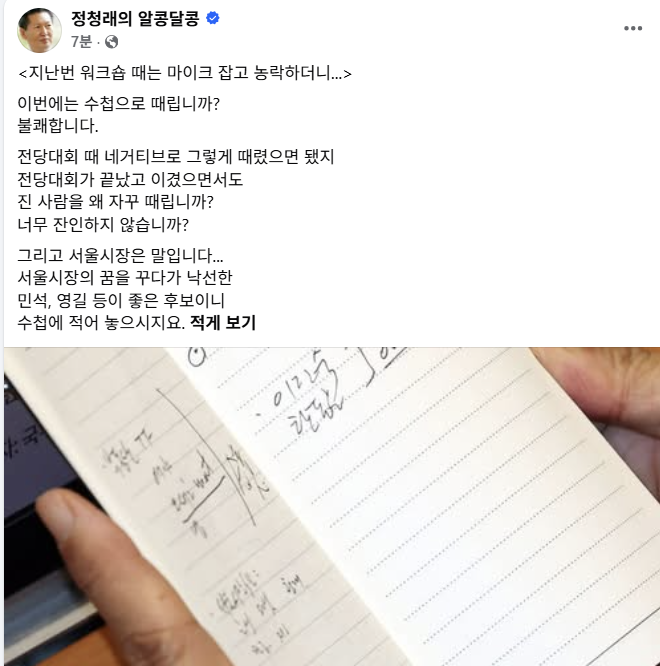 정청래의 알콩달콩
7분 ·
<지난번 워크숍 때는 마이크 잡고 농락하더니...>
이번에는 수첩으로 때립니까?
불쾌합니다.
전당대회 때 네거티브로 그렇게 때렸으면 됐지
전당대회가 끝났고 이겼으면서도
진 사람을 왜 자꾸 때립니까?
너무 잔인하지 않습니까?
그리고 서울시장은 말입니다...
서울시장의 꿈을 꾸다가 낙선한
민석, 영길 등이 좋은 후보이니
수첩에 적어 놓으시지요. 적게 보기